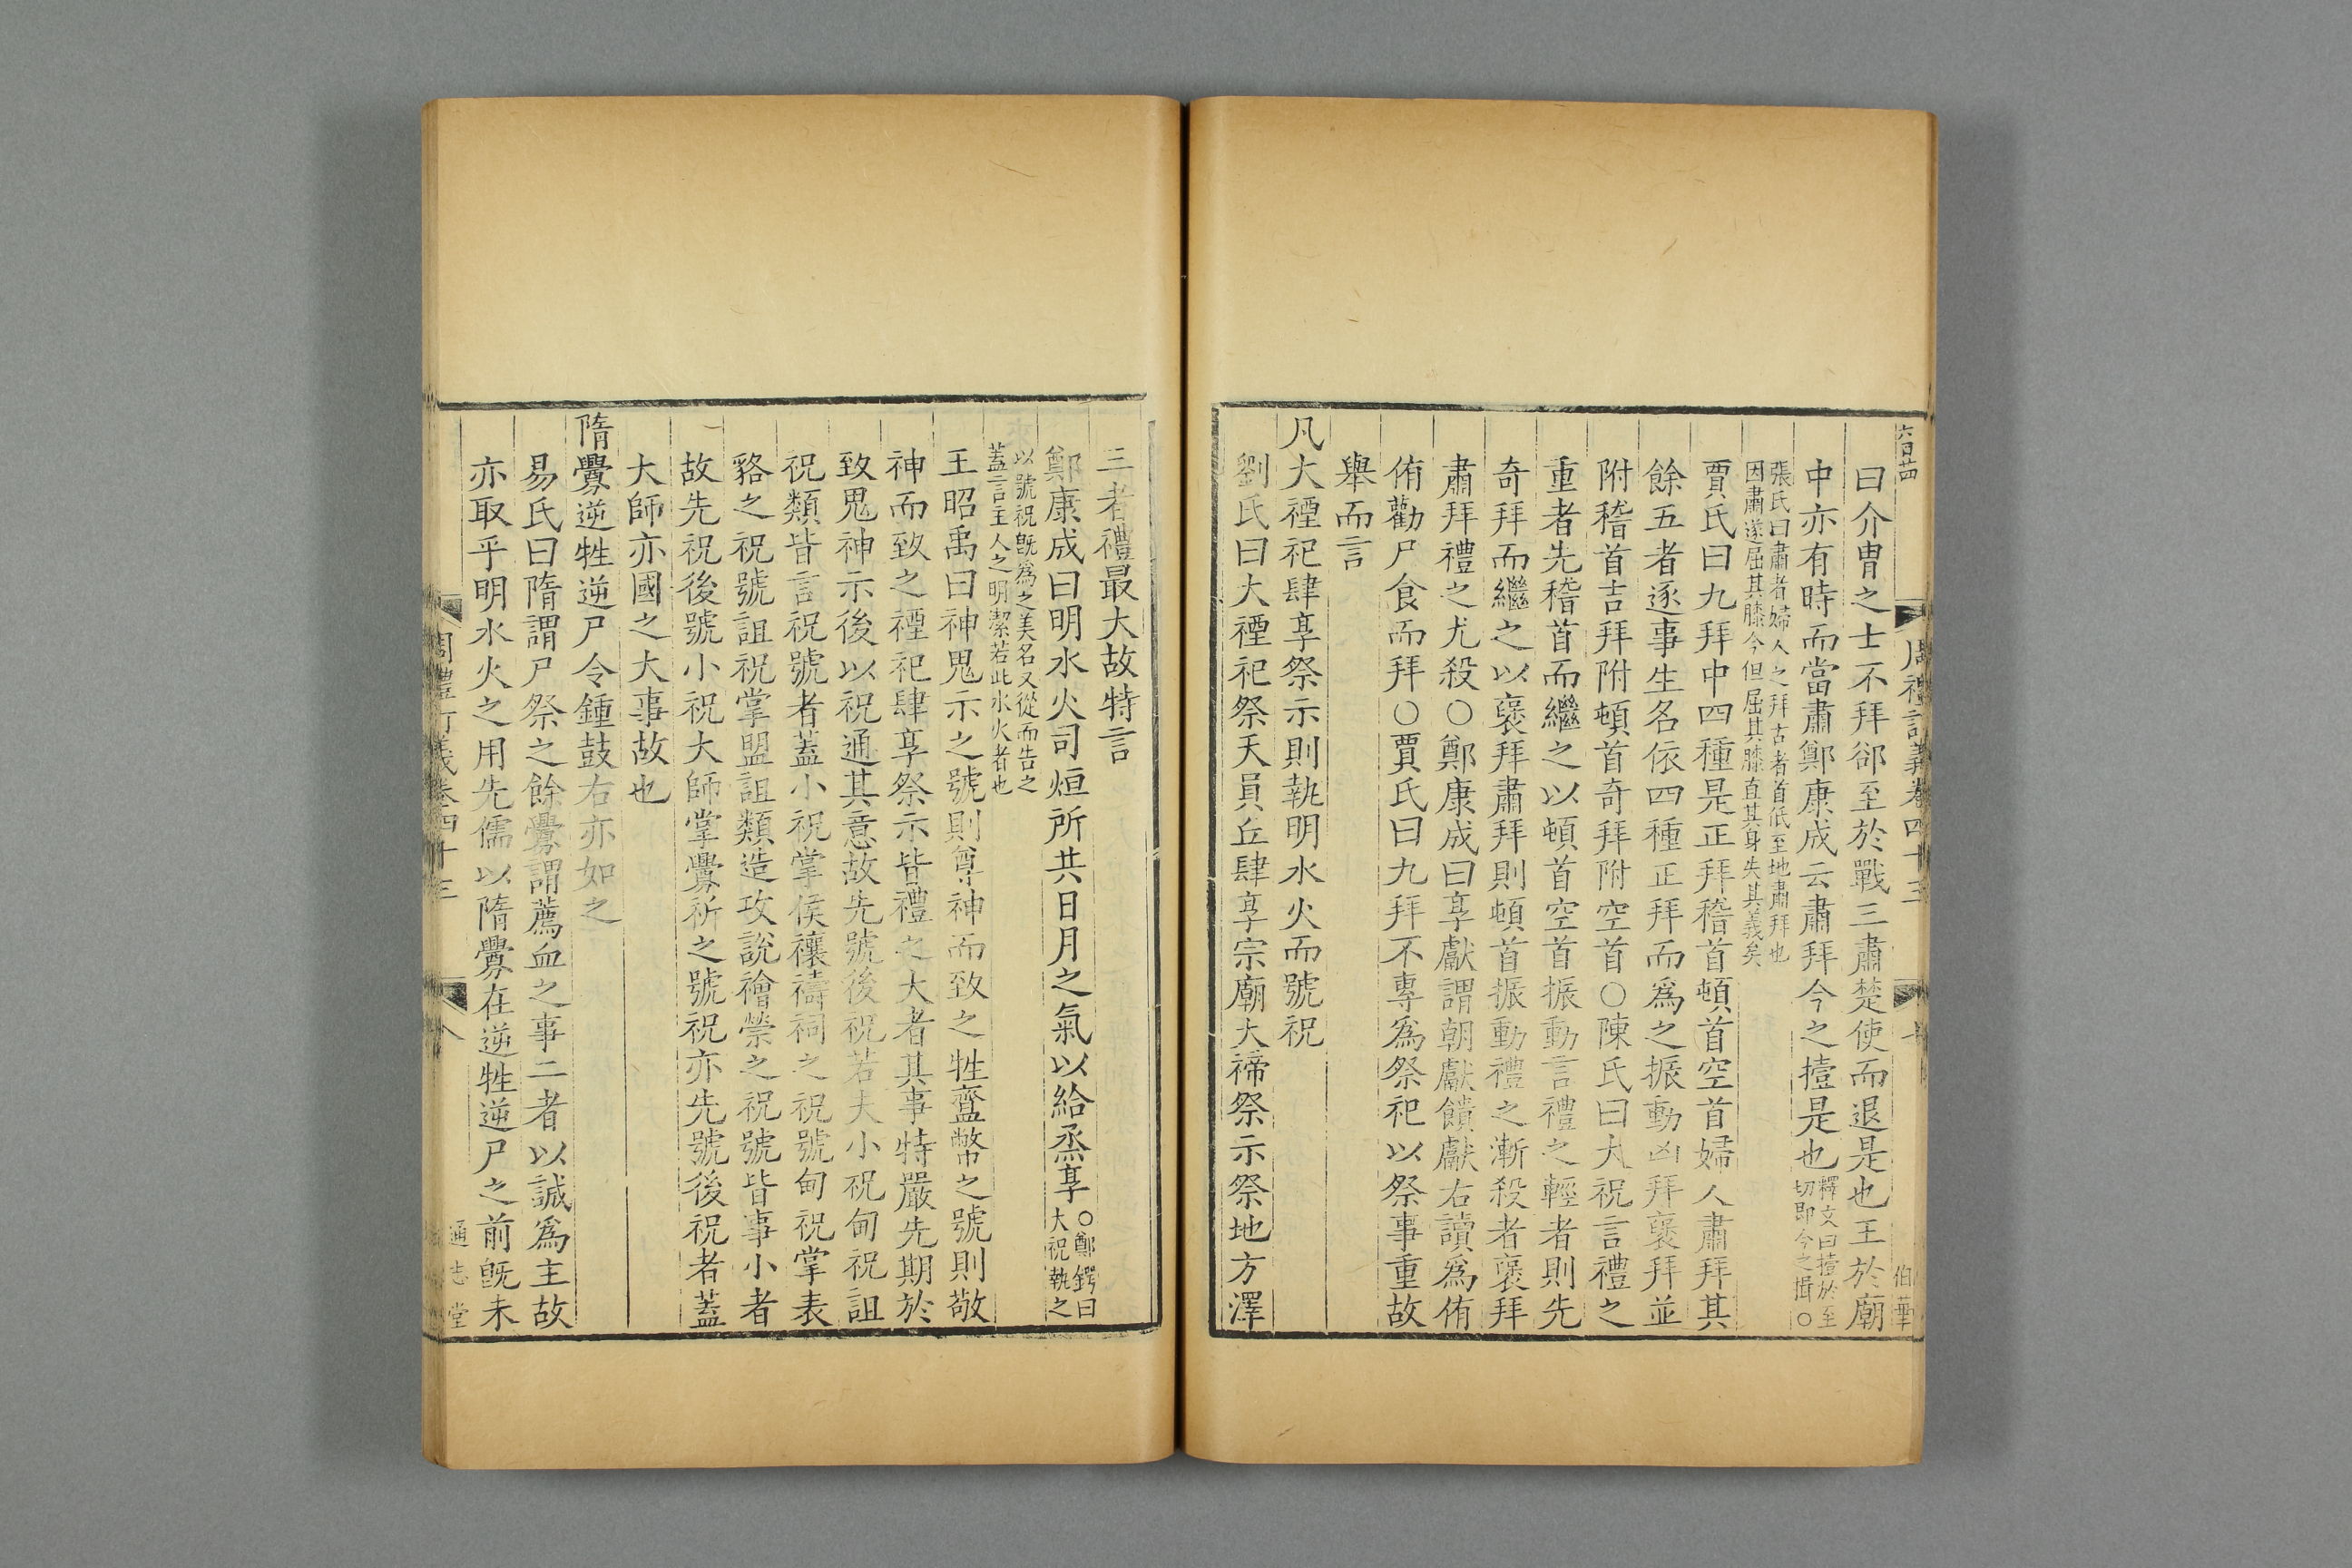 六百廿四
周禮訂義卷四十三
伯華
曰介冑之士不拜郤至於戰三肅楚使而退是也王於廟
中亦有時而當肅鄭康成云肅拜今之撎是也釋文曰撎於至
切即今之揖○
張氏曰肅者婦人之拜古者首低至地肅拜也
因肅遂屈其膝今但屈其膝直其身失其義矣
賈氏曰九拜中四種是正拜稽首頓首空首婦人肅拜其
餘五者逐事生名依四種正拜而爲之振動凶拜襃拜並
附稽首吉拜附頓首奇拜附空首○陳氏曰大祝言禮之
重者先稽首而繼之以頓首空首振動言禮之輕者則先
奇拜而繼之以襃拜肅拜則頓首振動禮之漸殺者襃拜
肅拜禮之尤殺○鄭康成曰享獻謂朝獻饋獻右讀爲侑
侑勸尸食而拜○賈氏曰九拜不專爲祭祀以祭事重故
舉而言
凡大禋祀肆享祭示則執明水火而號祝
劉氏曰大禋祀祭天員丘肆享宗廟大禘祭示祭地方澤
三者禮最大故特言
鄭康成曰明水火司烜所共日月之氣以給烝享○鄭鍔曰
大祝執之
以號祝旣爲之美名又從而告之
蓋言主人之明潔若此水火者也
王昭禹曰神鬼示之號則尊神而致之牲齍幣之號則敬
神而致之禋祀肆享祭示皆禮之大者其事特嚴先期於
致鬼神示後以祝通其意故先號後祝若夫小祝甸祝詛
祝類皆言祝號者蓋小祝掌侯禳禱祠之祝號甸祝掌表
貉之祝號詛祝掌盟詛類造攻說禬禜之祝號皆事小者
故先祝後號小祝大師掌釁祈之號祝亦先號後祝者蓋
大師亦國之大事故也
隋釁逆牲逆尸令鍾鼓右亦如之
易氏曰隋謂尸祭之餘釁謂薦血之事二者以誠爲主故
亦取乎明水火之用先儒以隋釁在逆牲逆尸之前旣未
周禮訂義卷四十三
八
通志堂